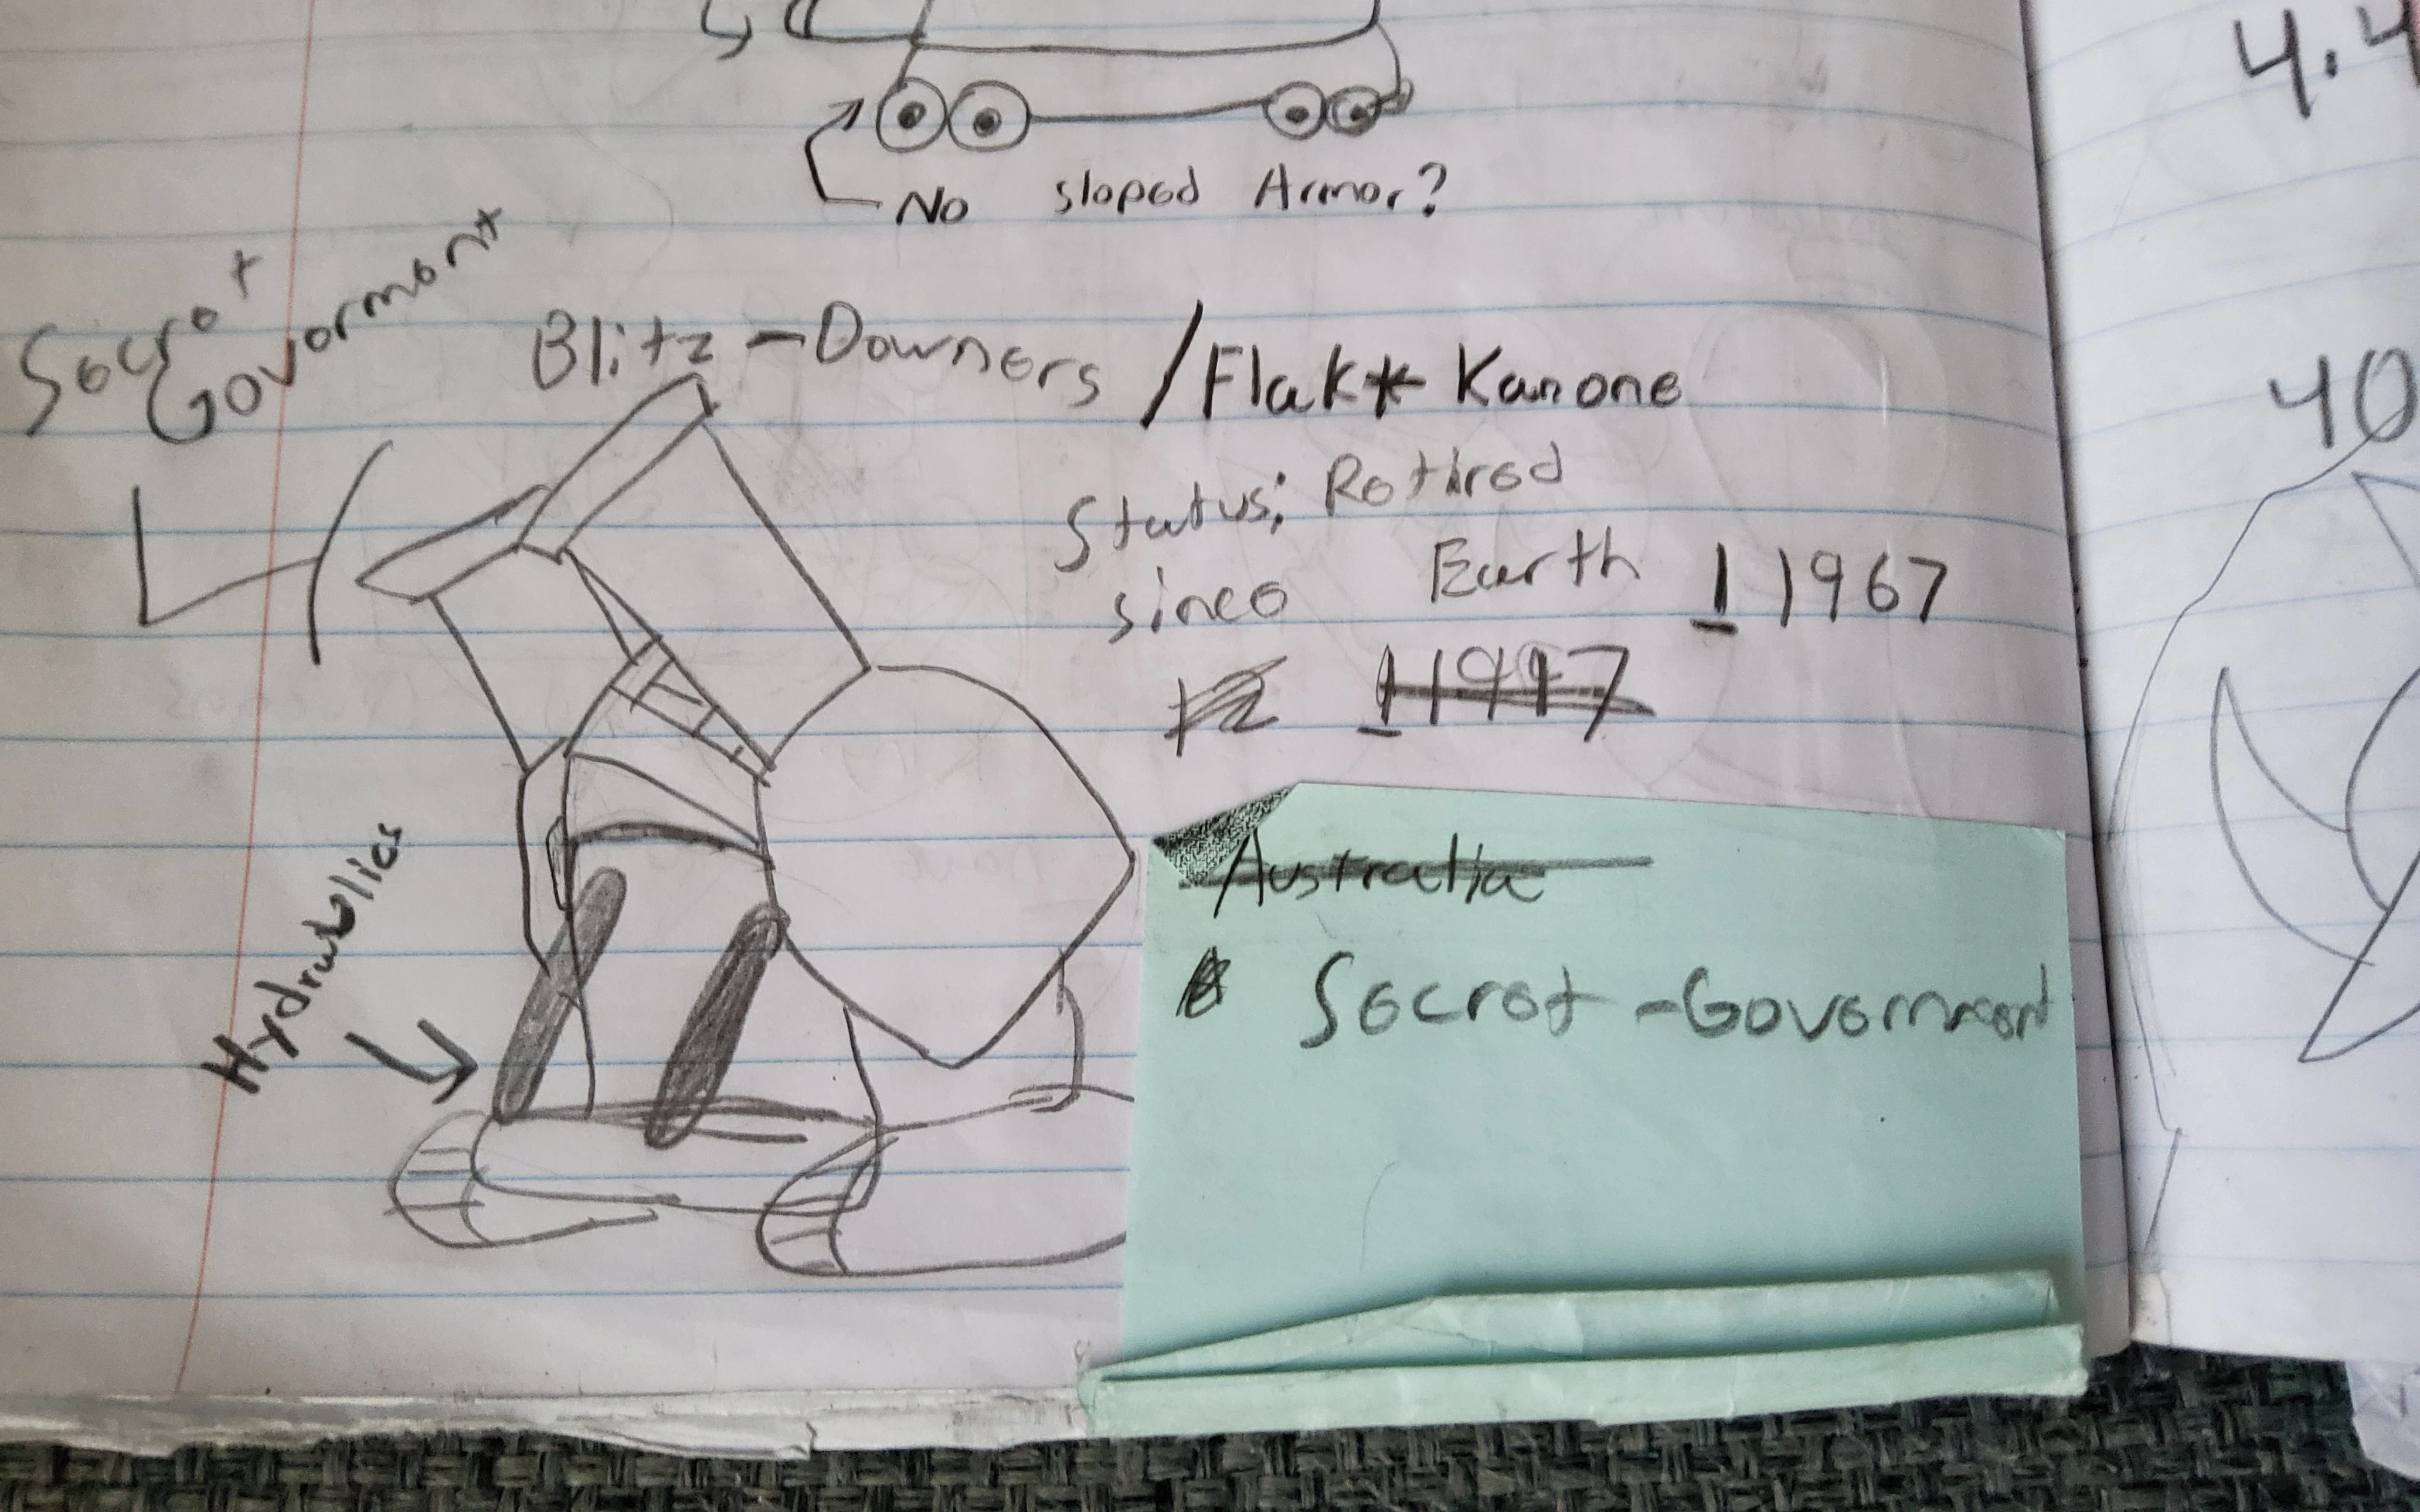 No sloped Armor?
Secret
Government
Blitz-Downers / Flak* Kanone
Status: Retired
since Earth 1 1967
11997
Hydraulics
Australia
Secret-Government
4.4
40